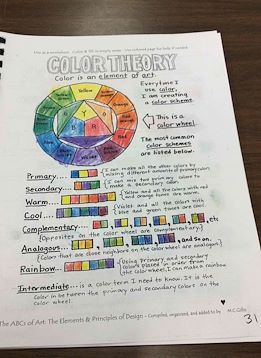 Use as a worksheet. Color & fill in empty areas. Use colored page for help if needed.
COLOR THEORY
Color is an element of art.
Everytime I
use color,
I am creating
a color scheme.
This is a
color wheel.
The most common
color schemes
are listed below.
Yellow
Orange
Red
Violet
Blue
Green
Y
B
R
Primary....
I can make all the other colors by
mixing different amounts of primary colors.
Secondary....
I can mix two primary colors to
make a secondary color.
Warm....
Yellow and all the colors with red
and orange tones are warm.
Cool....
Violet and all the colors with
blue and green tones are cool.
Complementary.... etc
(Opposites on the color wheel are complementary.)
Analogous.... , and so on.
(Colors that are close neighbors on the color wheel are analogous.)
Rainbow....
Using primary and secondary
colors placed in order from
the color wheel, I can make a rainbow.
Intermediate---is a color term I need to know. It is the
color in between the primary and secondary colors on the
color wheel.
The ABCs of Art: The Elements & Principles of Design - Compiled, organized, and added to by M.C.Gillis
31